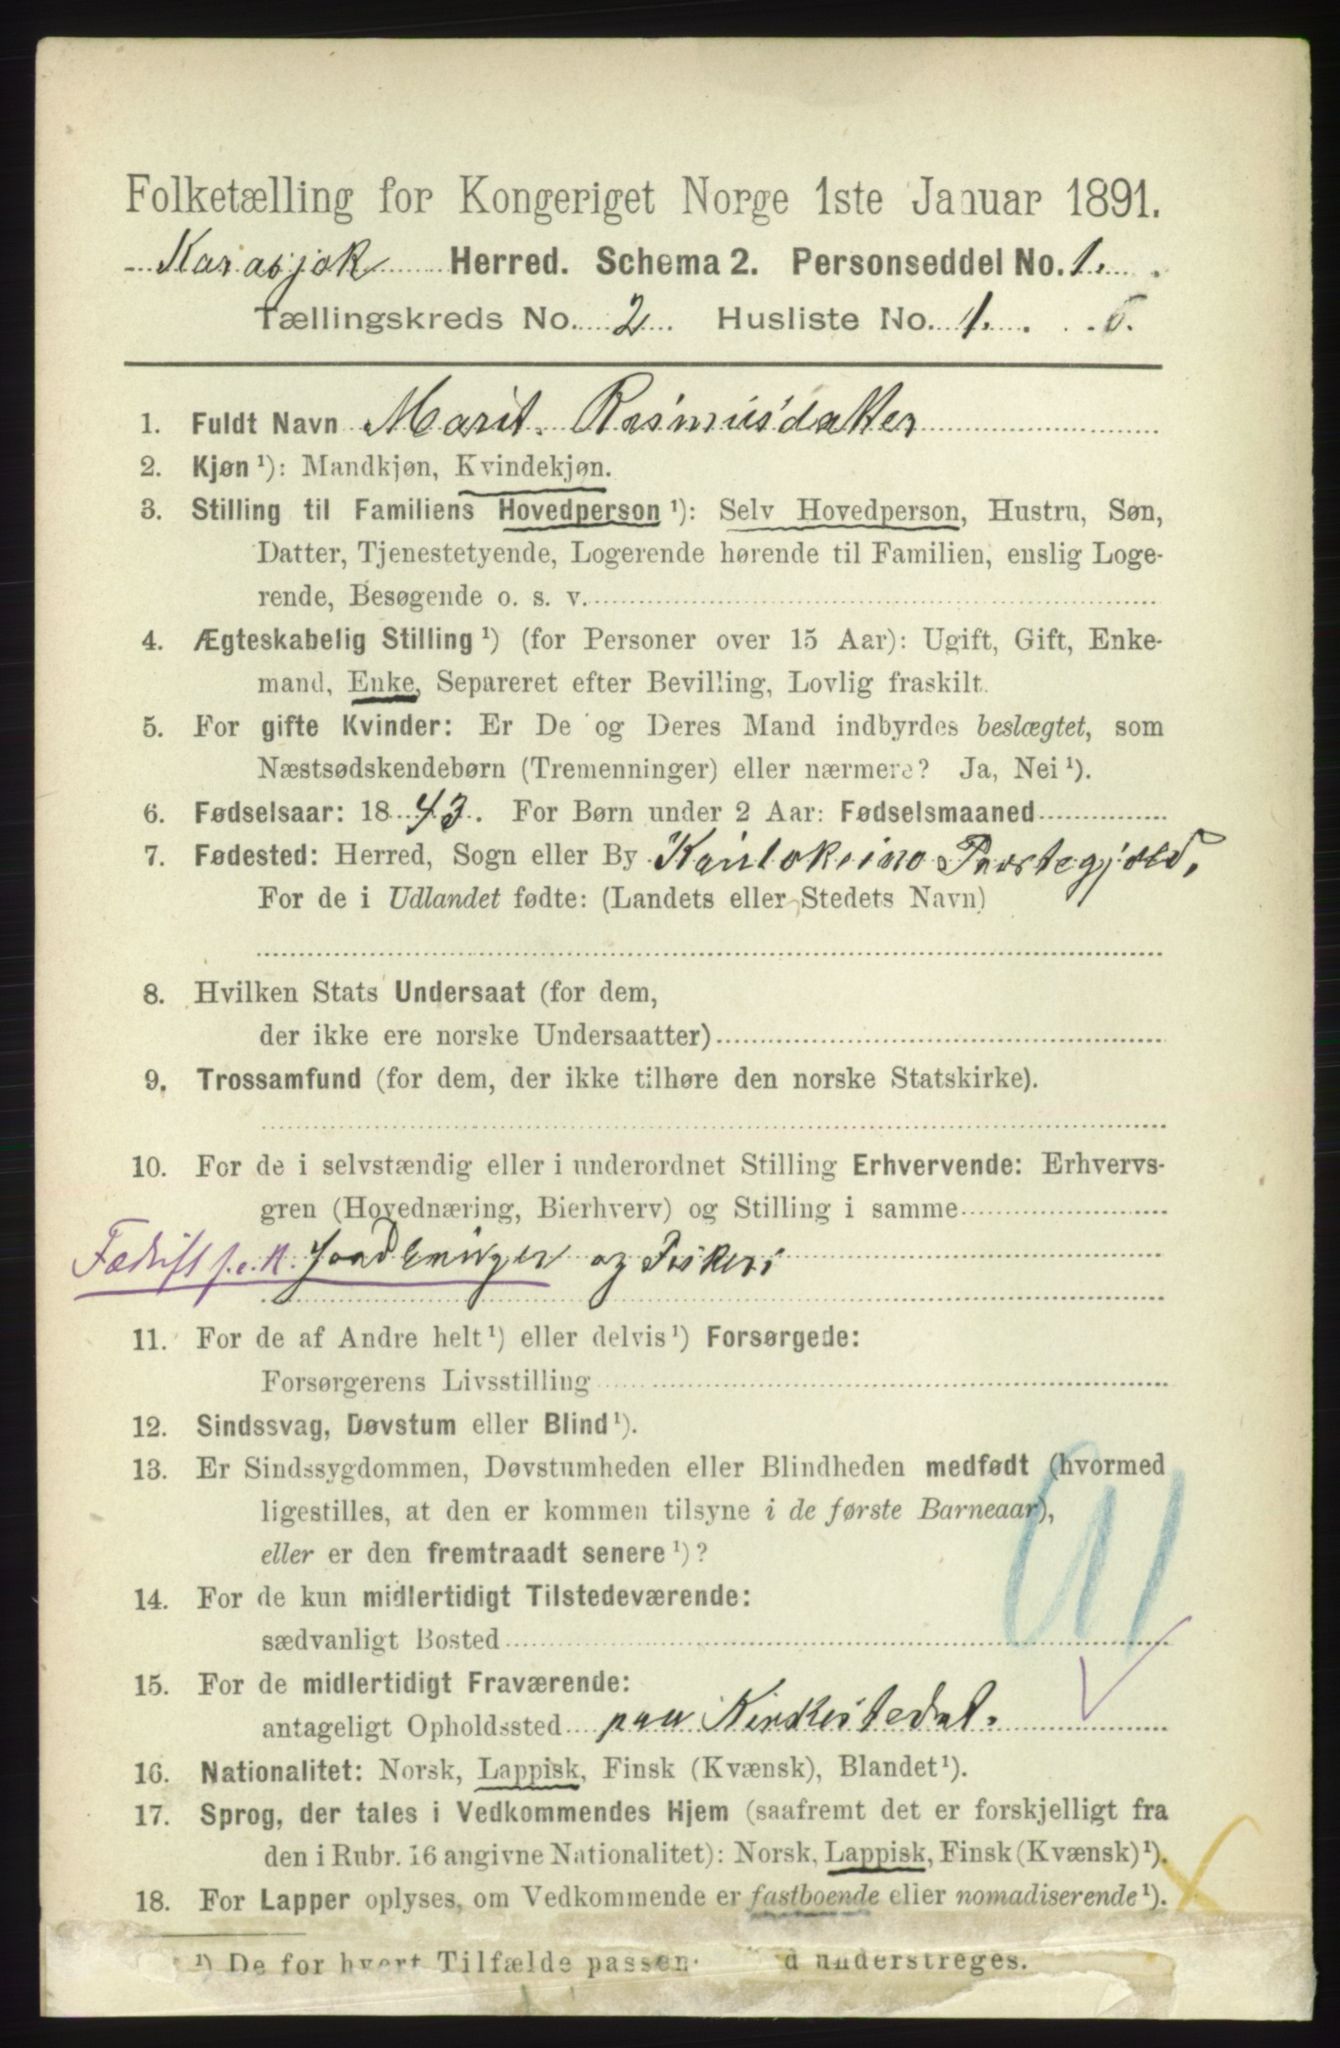 Folketælling for Kongeriget Norge 1ste Januar 1891.
Karasjok Herred. Schema 2. Personseddel No. 1.
Tællingskreds No. 2 Husliste No. 1. 6.
1. Fuldt Navn Marit Rasmusdatter
2. Kjøn ¹): Mandkjøn, Kvindekjøn.
3. Stilling til Familiens Hovedperson ¹): Selv Hovedperson, Hustru, Søn,
Datter, Tjenestetyende, Logerende hørende til Familien, enslig Loge-
rende, Besøgende o. s. v.
4. Ægteskabelig Stilling ¹) (for Personer over 15 Aar): Ugift, Gift, Enke-
mand, Enke, Separeret efter Bevilling, Lovlig fraskilt.
5. For gifte Kvinder: Er De og Deres Mand indbyrdes beslægtet, som
Næstsødskendebørn (Tremenninger) eller nærmere? Ja, Nei ¹).
6. Fødselsaar: 1843. For Børn under 2 Aar: Fødselsmaaned
7. Fødested: Herred, Sogn eller By Kautokeino Præstegjæld.
For de i Udlandet fødte: (Landets eller Stedets Navn)
8. Hvilken Stats Undersaat (for dem,
der ikke ere norske Undersaatter)
9. Trossamfund (for dem, der ikke tilhøre den norske Statskirke).
10. For de i selvstændig eller i underordnet Stilling Erhvervende: Erhvervs-
gren (Hovednæring, Bierhverv) og Stilling i samme
Fædrift s.e.H. og Fiskeri
11. For de af Andre helt ¹) eller delvis ¹) Forsørgede:
Forsørgerens Livsstilling
12. Sindssvag, Døvstum eller Blind ¹).
13. Er Sindssygdommen, Døvstumheden eller Blindheden medfødt (hvormed
ligestilles, at den er kommen tilsyne i de første Barneaar),
eller er den fremtraadt senere ¹)?
14. For de kun midlertidigt Tilstedeværende:
sædvanligt Bosted
15. For de midlertidigt Fraværende:
antageligt Opholdssted paa Kirkestedet.
16. Nationalitet: Norsk, Lappisk, Finsk (Kvænsk), Blandet ¹).
17. Sprog, der tales i Vedkommendes Hjem (saafremt det er forskjelligt fra
den i Rubr. 16 angivne Nationalitet): Norsk, Lappisk, Finsk (Kvænsk) ¹).
18. For Lapper oplyses, om Vedkommende er fastboende eller nomadiserende ¹).
¹) De for hvert Tilfælde passen d understreges.